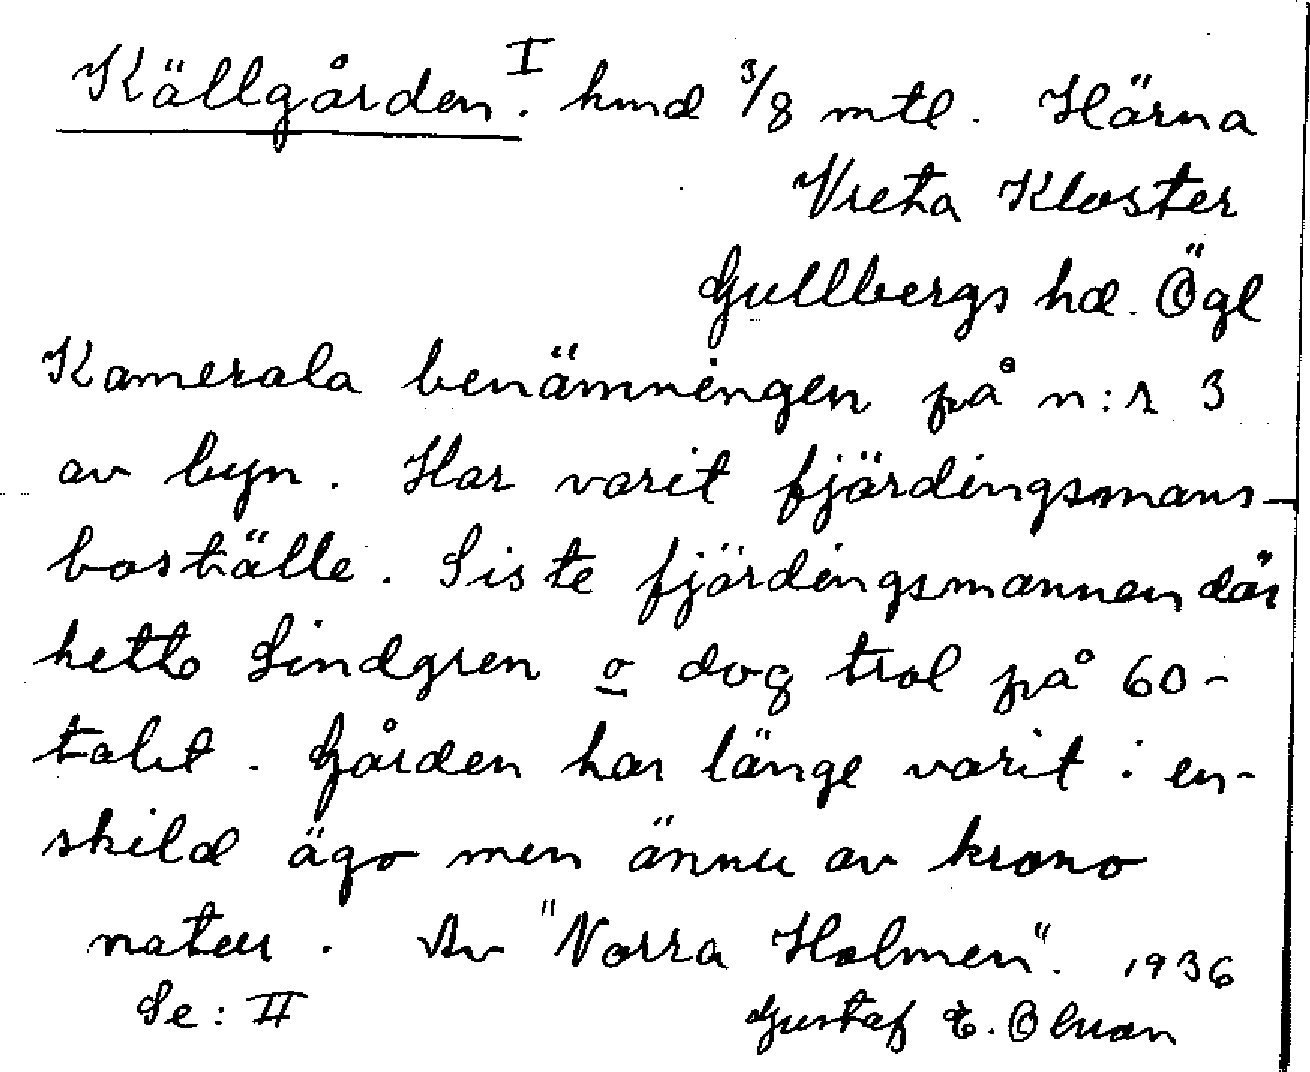 Källgården. I hmd 3/8 mtl. Härna
Vreta Kloster
Gullbergs hd. Ögl
Kamerala benämningen på n:r 3
av byn. Har varit fjärdingsmans-
boställe. Siste fjärdingsmannen där
hette Lindgren o dog trol på 60-
talet. Gården har länge varit i en-
skild ägo men ännu av krono
natur. Av "Norra Holmen". 1936
Se: II Gustaf E. Olsson